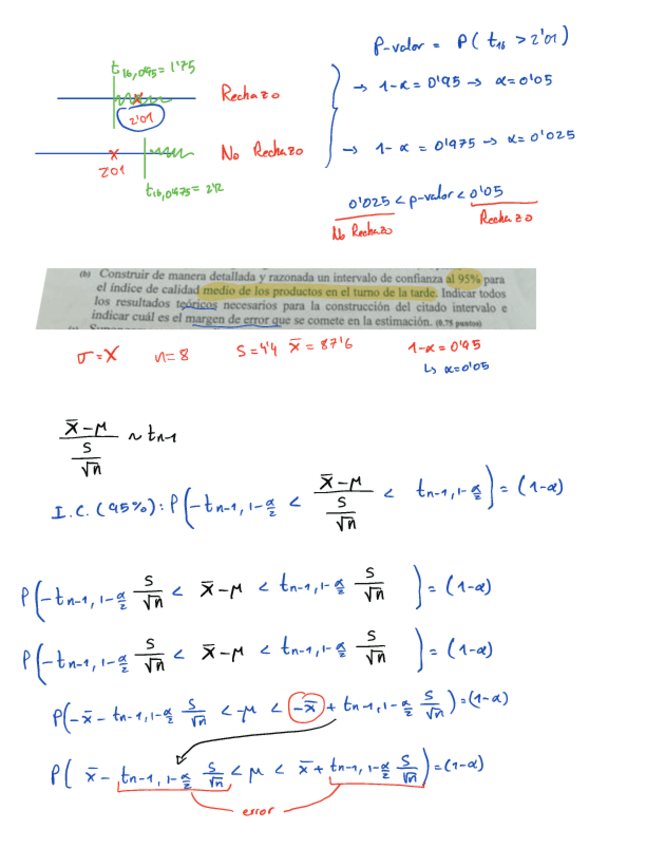 P-valor = P( t₁₆ > 2'01)
t₁₆,₀'₉₅ = 1'75
→ 1-α = 0'95 → α=0'05
Rechazo
2'01
→ 1-α = 0'975 → α=0'025
No Rechazo
201
t₁₆,₀'₉₇₅ = 2'12
0'025 < p-valor < 0'05
No Rechazo
Rechazo
(b) Construir de manera detallada y razonada un intervalo de confianza al 95% para
el índice de calidad medio de los productos en el turno de la tarde. Indicar todos
los resultados teóricos necesarios para la construcción del citado intervalo e
indicar cuál es el margen de error que se comete en la estimación. (0.75 puntos)
σ = X n = 8 S = 4'4 x̄ = 87'6 1-α = 0'95
↳ α=0'05
(x̄-μ)/(S/√n) ~ tn-1
I.C. (95%): P(-tn-1, 1-α/2 < (x̄-μ)/(S/√n) < tn-1, 1-α/2) = (1-α)
P(-tn-1, 1-α/2 S/√n < x̄-μ < tn-1, 1-α/2 S/√n) = (1-α)
P(-tn-1, 1-α/2 S/√n < x̄-μ < tn-1, 1-α/2 S/√n) = (1-α)
P(-x̄ - tn-1, 1-α/2 S/√n < -μ < -x̄ + tn-1, 1-α/2 S/√n) = (1-α)
P( x̄ - tn-1, 1-α/2 S/√n < μ < x̄ + tn-1, 1-α/2 S/√n) = (1-α)
error